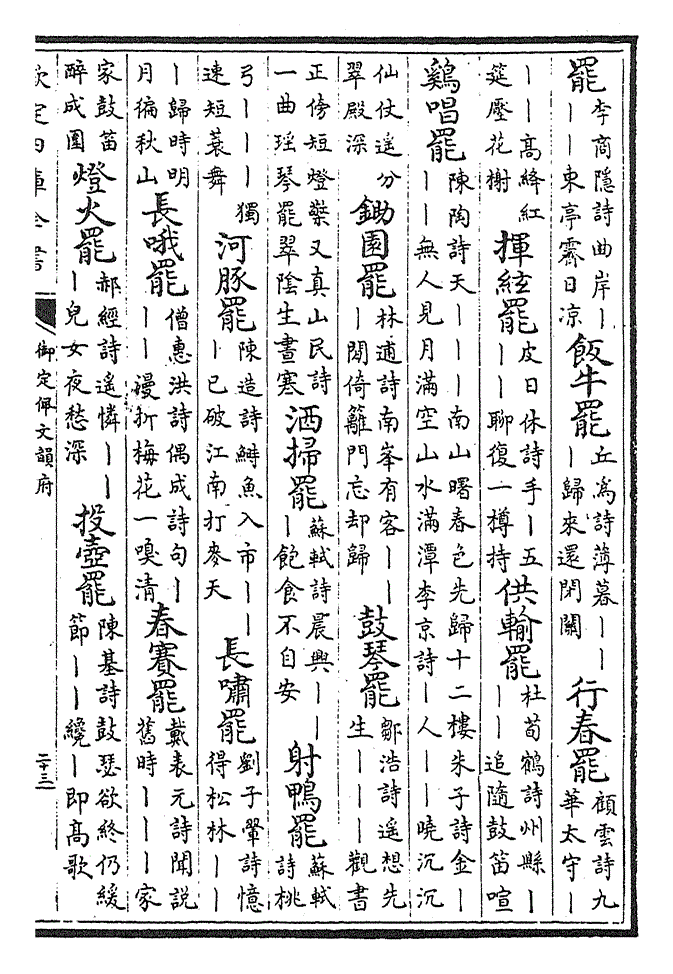 罷李商隱詩曲岸｜｜｜東亭霽日凉飯牛罷丘為詩薄暮｜｜｜歸來還閉關行春罷顧雲詩九華太守｜
｜｜高絳紅筵壓花榭揮絃罷皮日休詩手｜五｜｜聊復一樽持供輸罷杜荀鶴詩州縣｜｜｜追隨鼓笛喧
鷄唱罷陳陶詩天｜｜｜南山曙春色先歸十二樓朱子詩金｜｜｜無人見月滿空山水滿潭李京詩｜人｜｜曉沉沉
仙仗遥分翠殿深鋤園罷林逋詩南峯有客｜｜｜閒倚籬門忘却歸鼓琴罷鄒浩詩遥想先生｜｜｜觀書
正傍短燈檠又真山民詩一曲瑶琴罷翠陰生晝寒洒掃罷蘇軾詩晨興｜｜｜飽食不自安射鴨罷蘇軾詩桃
弓｜｜｜獨速短蓑舞河豚罷陳造詩鰣魚入市｜｜｜已破江南打麥天長嘯罷劉子翬詩憶得松林｜｜
｜歸時明月徧秋山長哦罷僧惠洪詩偶成詩句｜｜｜漫折梅花一嗅清春賽罷戴表元詩聞說舊時｜｜｜家
家鼓笛醉成圍燈火罷郝經詩遥憐｜｜｜兒女夜愁深投壺罷陳基詩鼓瑟欲終仍緩節｜｜纔｜即高歌
欽定四庫全書
御定佩文韻府
二十三